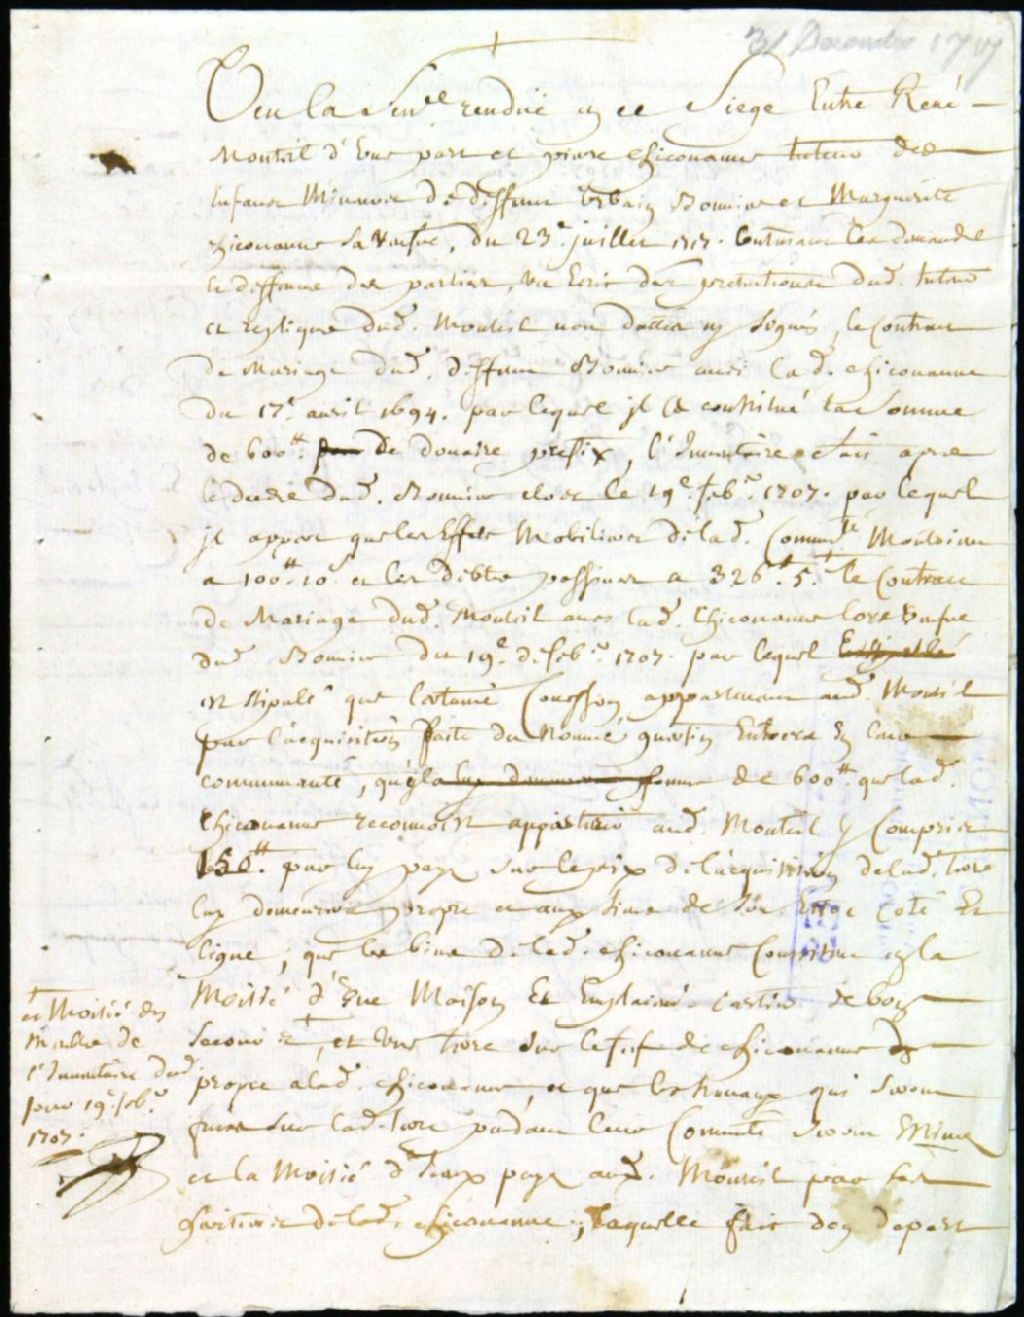 31 Decembre 1717
Veu la Sence. rendüe en ce Siege Entre René
Monteil d'Une part et pierre chicouanne tuteur des
Enfans Mineurs de deffunt Urbain Bomier et Marguerite
chicouanne sa Veufve, du 23e. juillet 1717. Contenant les demande
et deffense des parties, un Ecrit des pretentions dud. tuteur
et replique dud. Monteil non dattés ny signés, le Contract
de Mariage dud. deffunt Bomier avec lad. chicouanne
du 17e. avril 1694. par lequel il a constitué la Somme
de 600tt. de douaire prefix, l'Inventaire fait apres
le deces dud. Bomier clos le 19e. febr. 1707. par lequel
il appert que les Effets Mobiliers de lad. Commté. Montoient
a 100tt. 10s. et les debtes passives a 326tt. 5s. le Contract
de Mariage dud. Monteil avec lad. Chicouanne lors veufve
dud. Bomier du 19e. de febr. 1707. par lequel
est stipulé que appartenant aud. Monteil
par l'acquisition faite du Nommé quentin Entrera En leur
communauté, que la somme de 600tt. que lad.
Chicouanne reconnoist appartenir aud. Monteil y Compris
150tt. par luy payé sur le prix de l'acquisition de lad. terre
luy demeurera propre et aux siens de son Estoc Coté Et
ligne, que les biens de lad. chicouanne Consistent en la
Moitié d'Une Maison Et de bois
, et Une terre sur le fief de chicouanne
propre a lad. chicouanne, et que les travaux qui seront
faits sur lad. terre pendant leur Commté. seront
et la Moitié d'Iceux payé aud. Monteil par les
heritiers de lad. chicouanne, laquelle fait don
et Moitié des
Meubles de
l'Inventaire dud.
jour 19e. febr.
1707.